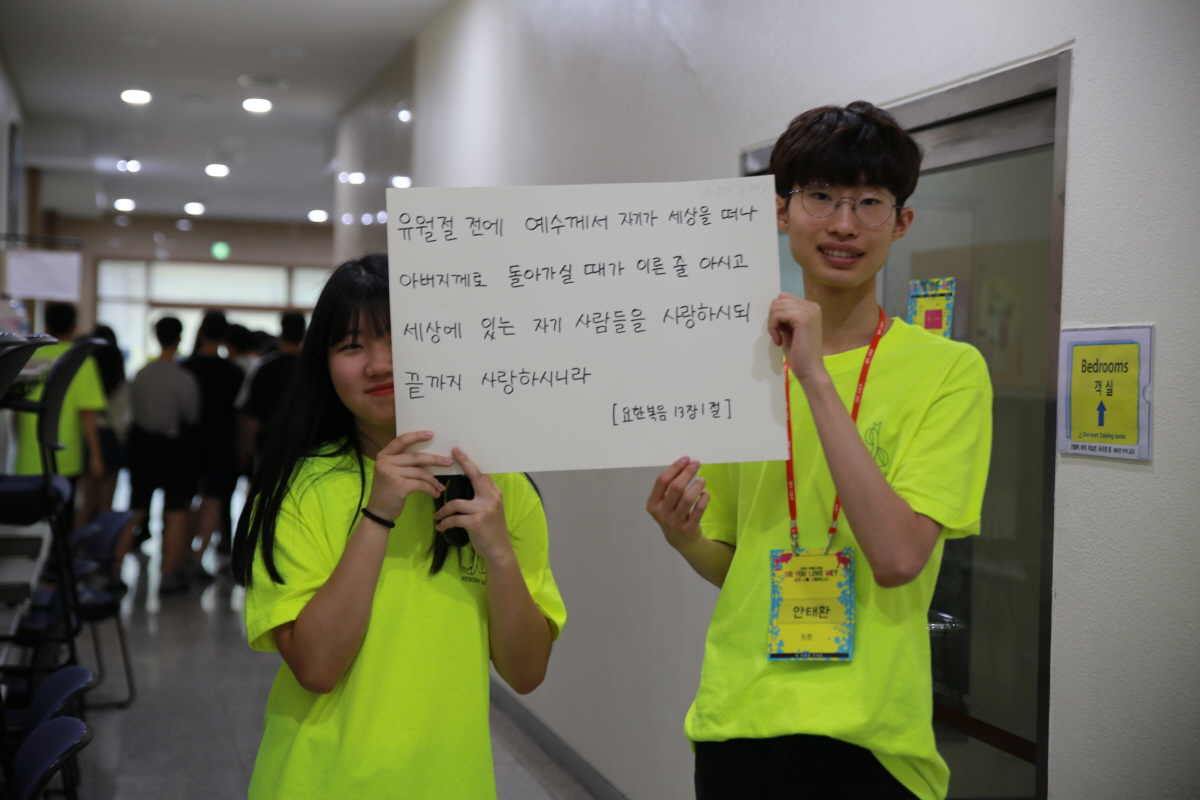 유월절 전에 예수께서 자기가 세상을 떠나
아버지께로 돌아가실 때가 이른 줄 아시고
세상에 있는 자기 사람들을 사랑하시되
끝까지 사랑하시니라
[요한복음 13장 1절]
DO YOU LOVE ME?
안태환
Bedrooms
객실